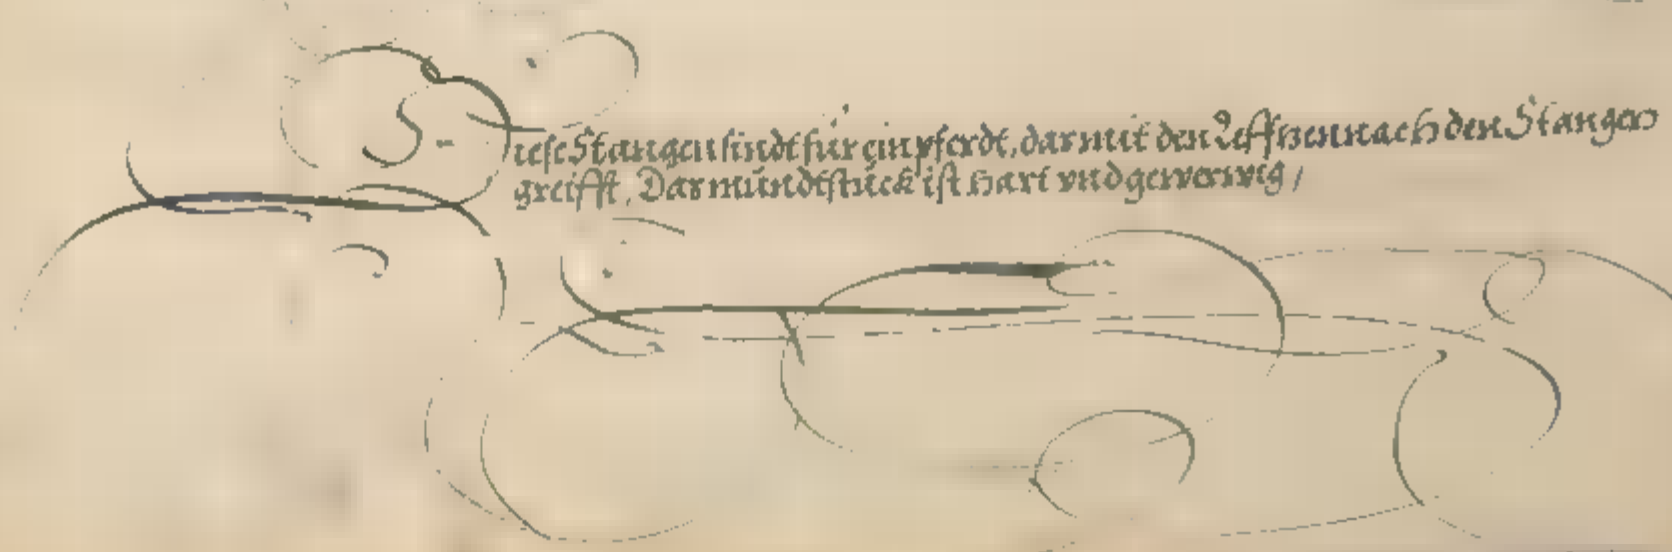 Diese Stangen sindt für ein pferdt, dar mit den Leffzenn nach den Stangen
greifft, Das mündtstück ist hart vnd